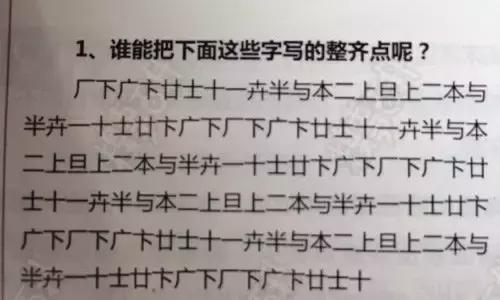 1、谁能把下面这些字写的整齐点呢？
厂下广卞廿士十一卉半与本二上旦上二本与
半卉一十士廿卞广下厂下广卞廿士十一卉半与本
二上旦上二本与半卉一十士廿卞广下厂下广卞廿
士十一卉半与本二上旦上二本与半卉一十士廿卞
广下厂下广卞廿士十一卉半与本二上旦上二本与
半卉一十士廿卞广下厂下广卞廿士十